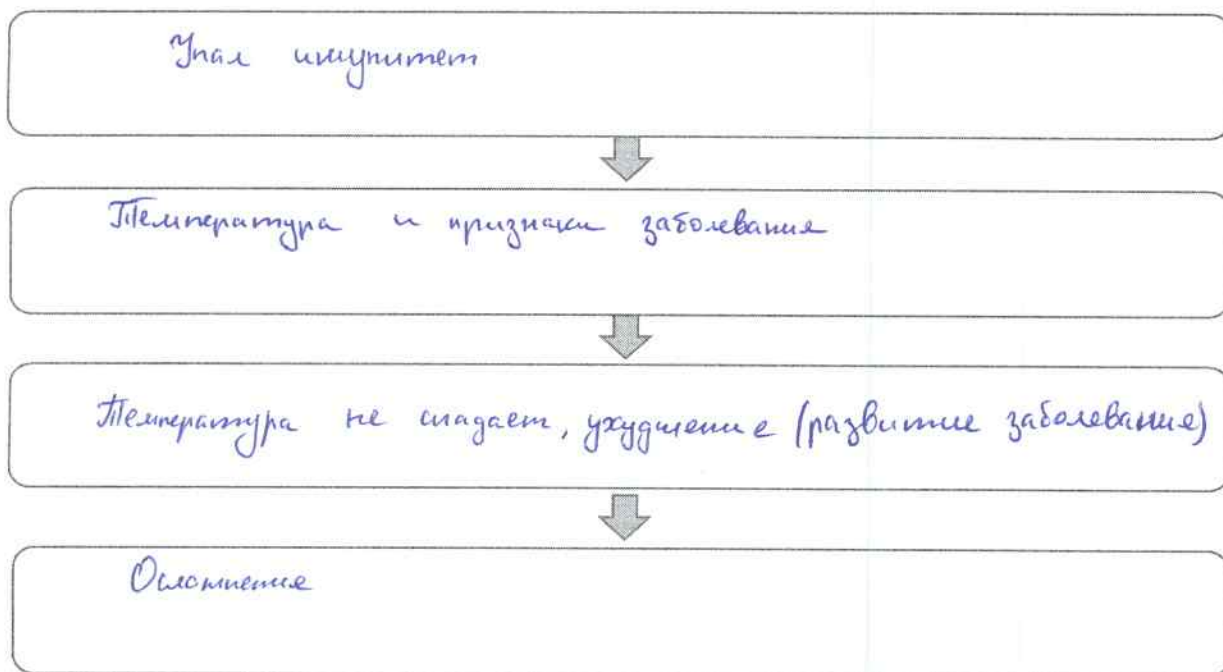 Упал имунитет
Температура и признаки заболевания
Температура не спадает, ухудшение (развитие заболевания)
Осложнения